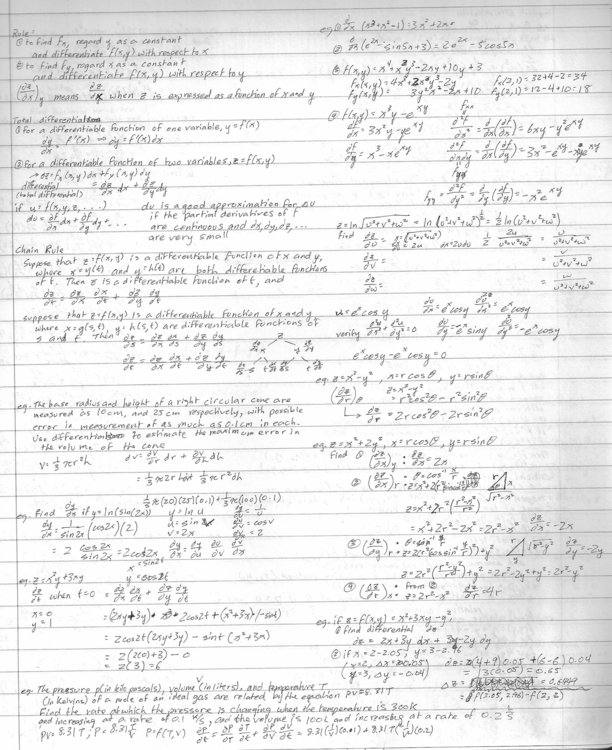 Rule:
① to find fx, regard y as a constant
and differentiate f(x,y) with respect to x
② to find fy, regard x as a constant
and differentiate f(x,y) with respect to y
(∂z/∂x)y means ∂z/∂x when z is expressed as a function of x and y
Total differential
① for a differentiable function of one variable, y=f(x)
dy/dx = f'(x) ⇒ dy = f'(x)dx
② for a differentiable function of two variables, z=f(x,y)
→ dz = fx(x,y)dx + fy(x,y)dy
differential = ∂z/∂x dx + ∂z/∂y dy
(total differential)
if u = f(x,y,z,...) du is a good approximation for Δu
du = ∂f/∂x dx + ∂f/∂y dy + ... if the partial derivatives of f
are continuous and dx, dy, dz, ...
are very small
Chain Rule
Suppose that z=f(x,y) is a differentiable function of x and y,
where x=g(t) and y=h(t) are both differentiable functions
of t. Then z is a differentiable function of t, and
∂z/∂t = ∂z/∂x ∂x/∂t + ∂z/∂y ∂y/∂t
suppose that z=f(x,y) is a differentiable function of x and y
where x=g(s,t), y=h(s,t) are differentiable functions of
s and t. Then ∂z/∂s = ∂z/∂x ∂x/∂s + ∂z/∂y ∂y/∂s
∂z/∂t = ∂z/∂x ∂x/∂t + ∂z/∂y ∂y/∂t
eg. The base radius and height of a right circular cone are
measured as 10cm, and 25cm respectively, with possible
error in measurement of as much as 0.1cm in each.
Use differential to estimate the maximum error in
the volume of the cone
V = 1/3 πr²h dV = ∂V/∂r dr + ∂V/∂h dh
= 1/3 π2rh dr + 1/3 πr² dh
1/3 π(20)(25)(0.1) + 1/3 π(100)(0.1)
eg. Find dy/dx if y = ln(sin(2x)) y = ln u
dy/dx = 1/sin2x (cos2x)(2) u = sin v
v = 2x
= 2 cos2x/sin2x
dy/dx = dy/du du/dv dv/dx
eg. z = x²y + 3xy x = sin2t
y = cos t
∂z/∂t when t=0 = ∂z/∂x ∂x/∂t + ∂z/∂y ∂y/∂t
x=0
y=1 = (2xy+3y) 2cos2t + (x²+3x)(-sint)
= 2cos2t(2xy+3y) - sint(x²+3x)
= 2(2(0)+3) - 0
= 2(3) = 6
eg. The pressure p(in kilopascals), volume V(in liters), and temperature T
(in kelvins) of a mole of an ideal gas are related by the equation PV=8.31T
Find the rate at which the pressure is changing when the temperature is 300K
and increasing at a rate of 0.1 K/s, and the volume is 100L and increasing at a rate of 0.2 L/s
PV = 8.31T, P = 8.31 T/V P = f(T,V)
eg ① ∂/∂x (x³+x²-1) = 3x²+2x
② ∂/∂x (e^2x - sin5x + 3) = 2e^2x - 5cos5x
fx(2,1) = 32+4-2 = 34
fy(2,1) = 12-4+10 = 18
④ f(x,y) = x³y - e^xy
∂f/∂x = 3x²y - ye^xy
∂f/∂y = x³ - xe^xy
∂²f/∂x² = ∂/∂x(∂f/∂x) = 6xy - y²e^xy
fyy = ∂²f/∂y² = ∂/∂y(∂f/∂y) = -x²e^xy
z = ln√(u²+v²+w²) = ln(u²+v²+w²)^½ = ½ ln(u²+v²+w²)
find ∂z/∂u = ½ 2u/(u²+v²+w²) = u/(u²+v²+w²)
∂z/∂v = v/(u²+v²+w²)
∂z/∂w = w/(u²+v²+w²)
u = e^x cos y ∂u/∂x = e^x cosy ∂²u/∂x² = e^x cosy
verify ∂²u/∂x² + ∂²u/∂y² = 0 ∂u/∂y = -e^x siny ∂²u/∂y² = -e^x cosy
e^x cosy - e^x cosy = 0
eg. z = x²-y², x = rcosθ, y = rsinθ
(∂z/∂r)θ z = x²-y²
= r²cos²θ - r²sin²θ
∂z/∂r = 2rcos²θ - 2rsin²θ
eg. z = x²+2y², x = rcosθ, y = rsinθ
Find ① (∂z/∂x)y : ∂z/∂x = 2x
② (∂z/∂x)r
= x²+2r²-2x² = 2r²-x² ∂z/∂x = -2x
∂z/∂y = -2y
④ (∂z/∂r)x • from ②
z = 2r²-x² ∂z/∂r = 4r
eg. if z = f(x,y) = x²+3xy-y²,
① find differential dz
② if x = 2-2.05, y = 3-2.96
(x=2, Δx=0.05)
(y=3, Δy=-0.04)
= 13(0.05) = 0.65
Δz = 0.6449
= f(2.05, 2.96) - f(2,3)